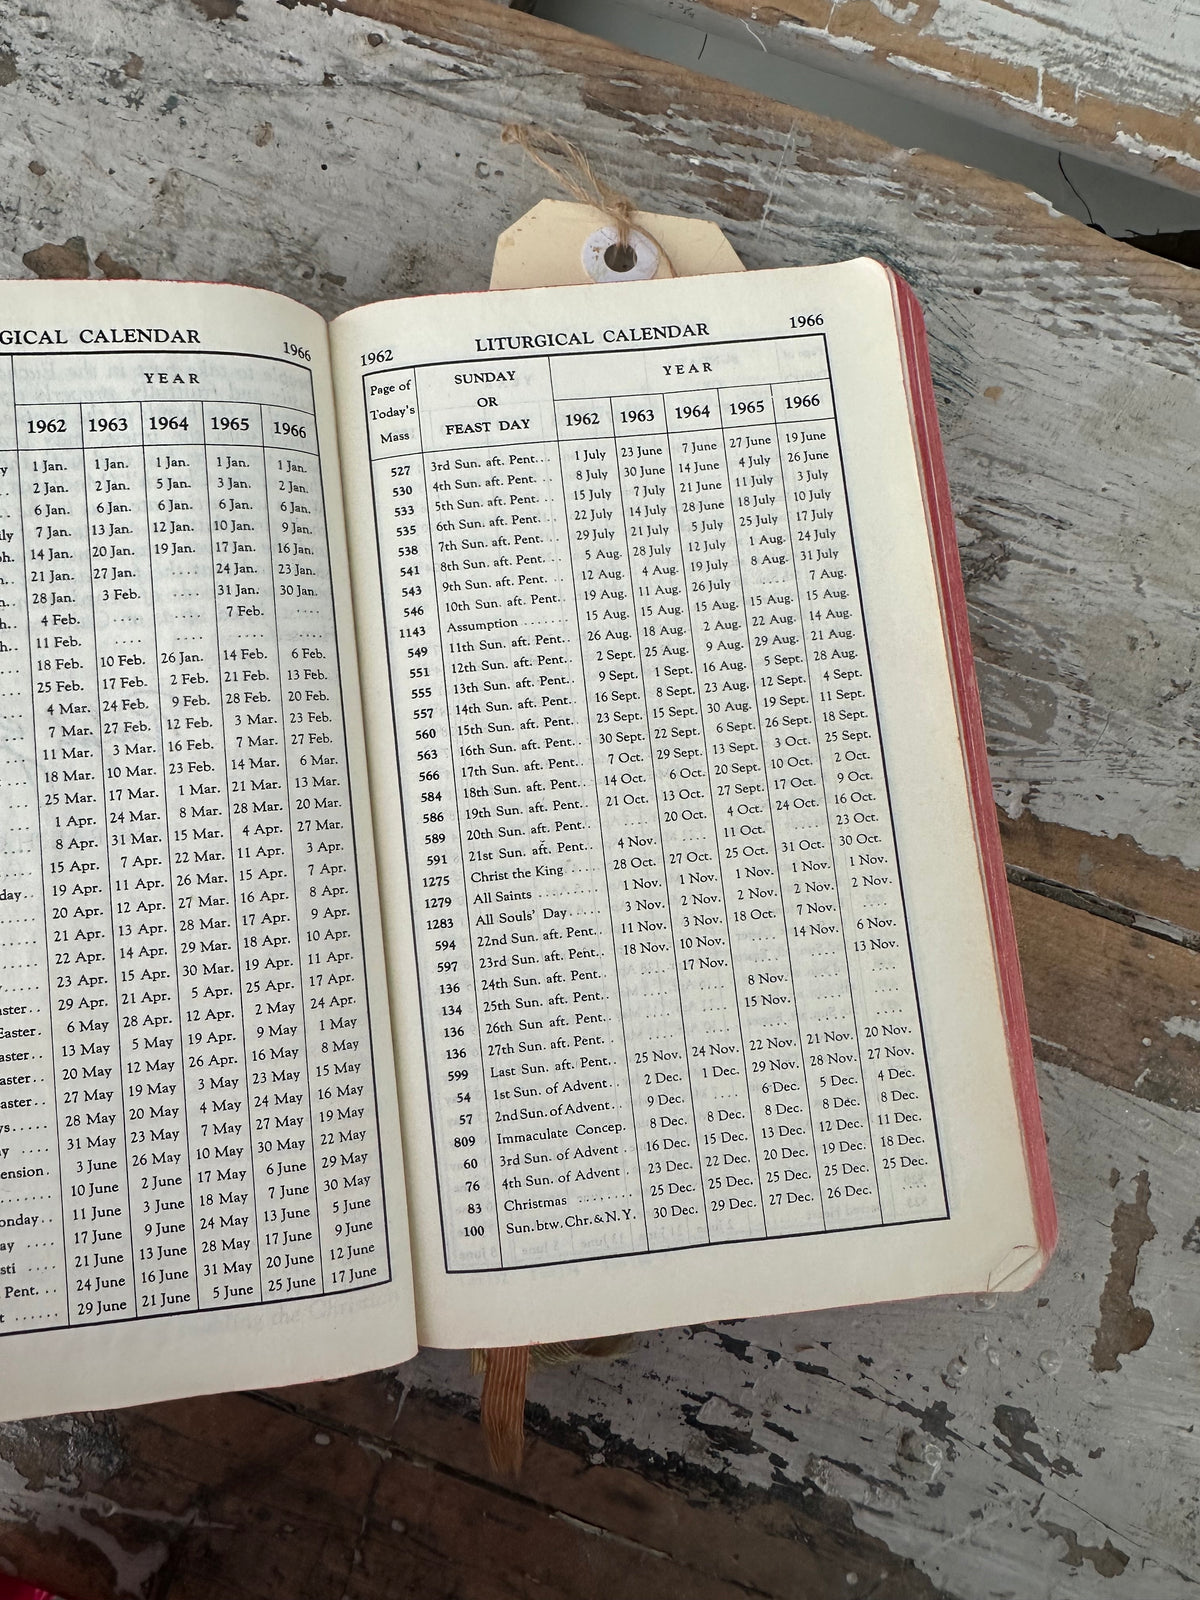 GICAL CALENDAR 1966
YEAR
1962 1963 1964 1965 1966
y 1 Jan. 1 Jan. 1 Jan. 1 Jan. 1 Jan.
.. 2 Jan. 2 Jan. 5 Jan. 3 Jan. 2 Jan.
6 Jan. 6 Jan. 6 Jan. 6 Jan. 6 Jan.
ily 7 Jan. 13 Jan. 12 Jan. 10 Jan. 9 Jan.
h. 14 Jan. 20 Jan. 19 Jan. 17 Jan. 16 Jan.
21 Jan. 27 Jan. .... 24 Jan. 23 Jan.
28 Jan. 3 Feb. .... 31 Jan. 30 Jan.
h.. 4 Feb. .... .... 7 Feb. ....
h.. 11 Feb. .... .... .... ....
18 Feb. 10 Feb. 26 Jan. 14 Feb. 6 Feb.
25 Feb. 17 Feb. 2 Feb. 21 Feb. 13 Feb.
4 Mar. 24 Feb. 9 Feb. 28 Feb. 20 Feb.
7 Mar. 27 Feb. 12 Feb. 3 Mar. 23 Feb.
11 Mar. 3 Mar. 16 Feb. 7 Mar. 27 Feb.
18 Mar. 10 Mar. 23 Feb. 14 Mar. 6 Mar.
25 Mar. 17 Mar. 1 Mar. 21 Mar. 13 Mar.
1 Apr. 24 Mar. 8 Mar. 28 Mar. 20 Mar.
8 Apr. 31 Mar. 15 Mar. 4 Apr. 27 Mar.
15 Apr. 7 Apr. 22 Mar. 11 Apr. 3 Apr.
day.. 19 Apr. 11 Apr. 26 Mar. 15 Apr. 7 Apr.
20 Apr. 12 Apr. 27 Mar. 16 Apr. 8 Apr.
21 Apr. 13 Apr. 28 Mar. 17 Apr. 9 Apr.
22 Apr. 14 Apr. 29 Mar. 18 Apr. 10 Apr.
23 Apr. 15 Apr. 30 Mar. 19 Apr. 11 Apr.
aster.. 29 Apr. 21 Apr. 5 Apr. 25 Apr. 17 Apr.
Easter. 6 May 28 Apr. 12 Apr. 2 May 24 Apr.
aster.. 13 May 5 May 19 Apr. 9 May 1 May
aster.. 20 May 12 May 26 Apr. 16 May 8 May
aster.. 27 May 19 May 3 May 23 May 15 May
ys..... 28 May 20 May 4 May 24 May 16 May
y .... 31 May 23 May 7 May 27 May 19 May
ension. 3 June 26 May 10 May 30 May 22 May
........ 10 June 2 June 17 May 6 June 29 May
onday.. 11 June 3 June 18 May 7 June 30 May
ay .... 17 June 9 June 24 May 13 June 5 June
sti .... 21 June 13 June 28 May 17 June 9 June
Pent... 24 June 16 June 31 May 20 June 12 June
t ...... 29 June 21 June 5 June 25 June 17 June
1962 LITURGICAL CALENDAR 1966
Page of Today's Mass SUNDAY OR FEAST DAY YEAR
1962 1963 1964 1965 1966
527 3rd Sun. aft. Pent... 1 July 23 June 7 June 27 June 19 June
530 4th Sun. aft. Pent... 8 July 30 June 14 June 4 July 26 June
533 5th Sun. aft. Pent... 15 July 7 July 21 June 11 July 3 July
535 6th Sun. aft. Pent... 22 July 14 July 28 June 18 July 10 July
538 7th Sun. aft. Pent... 29 July 21 July 5 July 25 July 17 July
541 8th Sun. aft. Pent... 5 Aug. 28 July 12 July 1 Aug. 24 July
543 9th Sun. aft. Pent... 12 Aug. 4 Aug. 19 July 8 Aug. 31 July
546 10th Sun. aft. Pent.. 19 Aug. 11 Aug. 26 July .... 7 Aug.
1143 Assumption ........ 15 Aug. 15 Aug. 15 Aug. 15 Aug. 15 Aug.
549 11th Sun. aft. Pent.. 26 Aug. 18 Aug. 2 Aug. 22 Aug. 14 Aug.
551 12th Sun. aft. Pent.. 2 Sept. 25 Aug. 9 Aug. 29 Aug. 21 Aug.
555 13th Sun. aft. Pent.. 9 Sept. 1 Sept. 16 Aug. 5 Sept. 28 Aug.
557 14th Sun. aft. Pent.. 16 Sept. 8 Sept. 23 Aug. 12 Sept. 4 Sept.
560 15th Sun. aft. Pent.. 23 Sept. 15 Sept. 30 Aug. 19 Sept. 11 Sept.
563 16th Sun. aft. Pent.. 30 Sept. 22 Sept. 6 Sept. 26 Sept. 18 Sept.
566 17th Sun. aft. Pent.. 7 Oct. 29 Sept. 13 Sept. 3 Oct. 25 Sept.
584 18th Sun. aft. Pent.. 14 Oct. 6 Oct. 20 Sept. 10 Oct. 2 Oct.
586 19th Sun. aft. Pent.. 21 Oct. 13 Oct. 27 Sept. 17 Oct. 9 Oct.
589 20th Sun. aft. Pent.. .... 20 Oct. 4 Oct. 24 Oct. 16 Oct.
591 21st Sun. aft. Pent.. 4 Nov. .... 11 Oct. .... 23 Oct.
1275 Christ the King ..... 28 Oct. 27 Oct. 25 Oct. 31 Oct. 30 Oct.
1279 All Saints ......... 1 Nov. 1 Nov. 1 Nov. 1 Nov. 1 Nov.
1283 All Souls' Day..... 3 Nov. 2 Nov. 2 Nov. 2 Nov. 2 Nov.
594 22nd Sun. aft. Pent.. 11 Nov. 3 Nov. 18 Oct. 7 Nov. ....
597 23rd Sun. aft. Pent.. 18 Nov. 10 Nov. .... 14 Nov. 6 Nov.
136 24th Sun. aft. Pent.. .... 17 Nov. .... .... 13 Nov.
134 25th Sun. aft. Pent.. .... .... 8 Nov. .... ....
136 26th Sun aft. Pent.. .... .... 15 Nov. .... ....
136 27th Sun. aft. Pent.. .... .... .... .... ....
599 Last Sun. aft. Pent.. 25 Nov. 24 Nov. 22 Nov. 21 Nov. 20 Nov.
54 1st Sun. of Advent.. 2 Dec. 1 Dec. 29 Nov. 28 Nov. 27 Nov.
57 2nd Sun. of Advent.. 9 Dec. .... 6 Dec. 5 Dec. 4 Dec.
809 Immaculate Concep. 8 Dec. 8 Dec. 8 Dec. 8 Dec. 8 Dec.
60 3rd Sun. of Advent . 16 Dec. 15 Dec. 13 Dec. 12 Dec. 11 Dec.
76 4th Sun. of Advent . 23 Dec. 22 Dec. 20 Dec. 19 Dec. 18 Dec.
83 Christmas ........ 25 Dec. 25 Dec. 25 Dec. 25 Dec. 25 Dec.
100 Sun. btw. Chr. & N.Y. 30 Dec. 29 Dec. 27 Dec. 26 Dec. ....